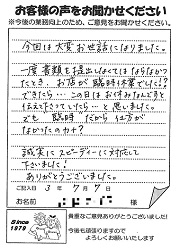 お客様の声をお聞かせください
※今後の業務向上のため、ご意見をお聞かせください。
今回は大変お世話になりました。
一度書類を提出しなくてはならなかった
とき、お店が臨時休業でした!?
できたら…この日はお休みなんですと
伝えて下さっていたら…と思いました。
でも臨時だから仕方が
なかったのカナ?
誠実にスピーディーに対応して
下さいました!
ありがとうございました。
ご記入日 3年7月7日
お名前
Since
1979
貴重なご意見ありがとうございました!
今後も頑張りますので
よろしくお願いいたします